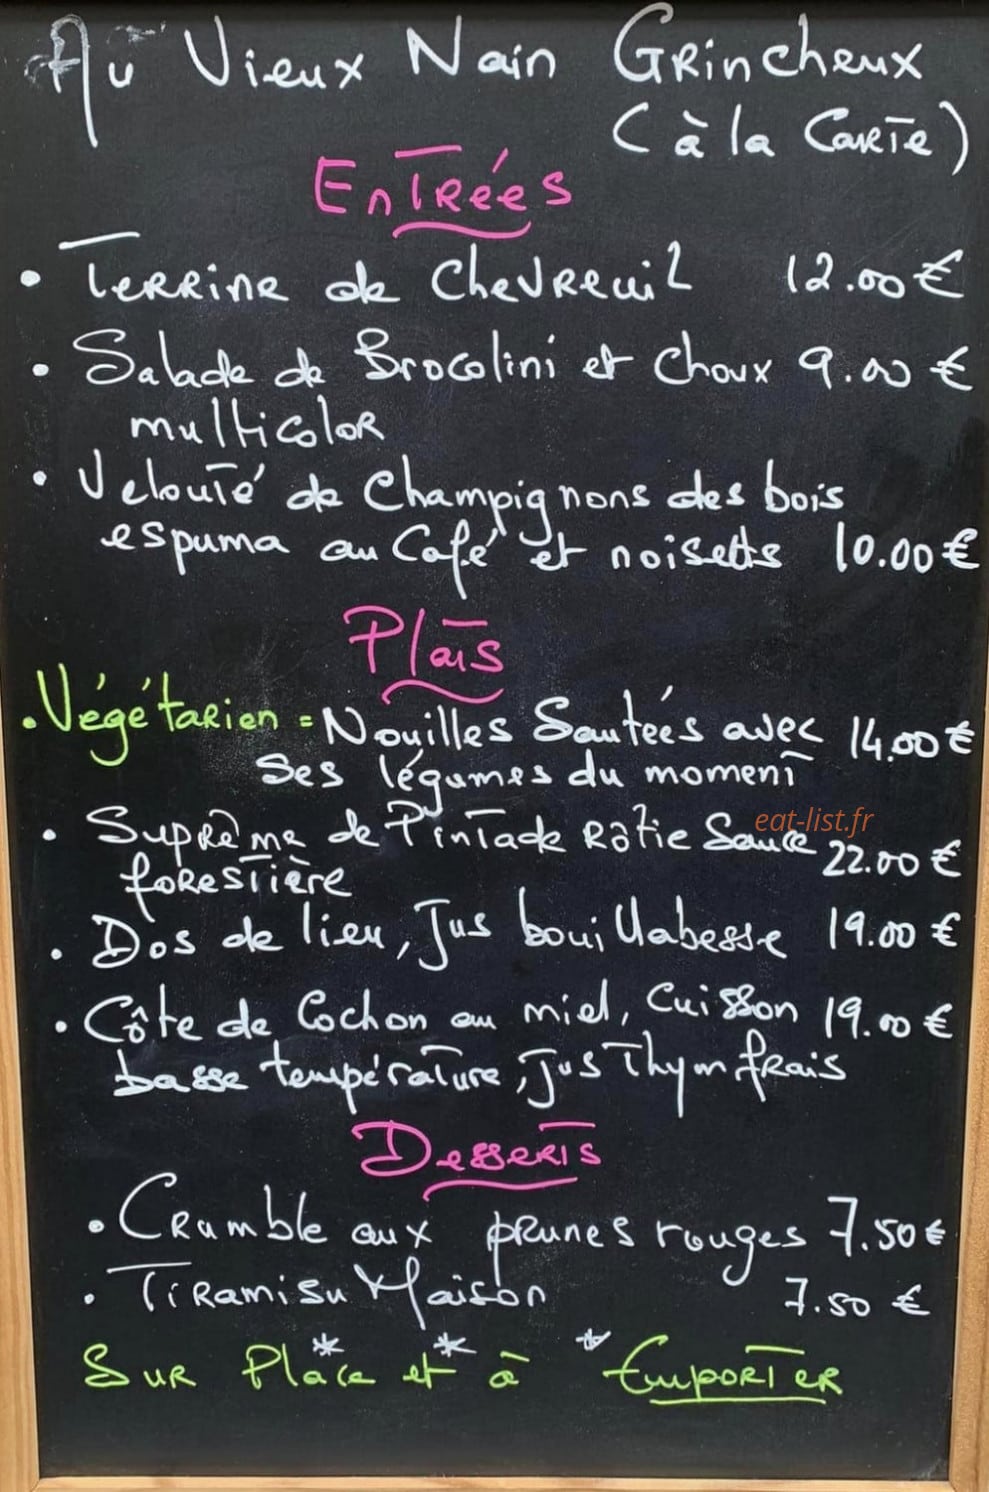 Au Vieux Nain Grincheux
(à la Carte)
Entrées
• Terrine de Chevreuil 12.00 €
• Salade de Brocolini et Choux 9.00 €
multicolor
• Velouté de Champignons des bois
espuma au Café et noisettes 10.00 €
Plats
• Végétarien = Nouilles Sautées avec 14.00 €
Ses légumes du moment
• Suprême de Pintade Rôtie Sauce 22.00 €
eat-list.fr
forestière
• Dos de lieu, Jus bouillabesse 19.00 €
• Côte de Cochon au miel, Cuisson 19.00 €
basse température, Jus Thym frais
Desserts
• Crumble aux prunes rouges 7.50 €
• Tiramisu Maison 7.50 €
Sur Place et à Emporter